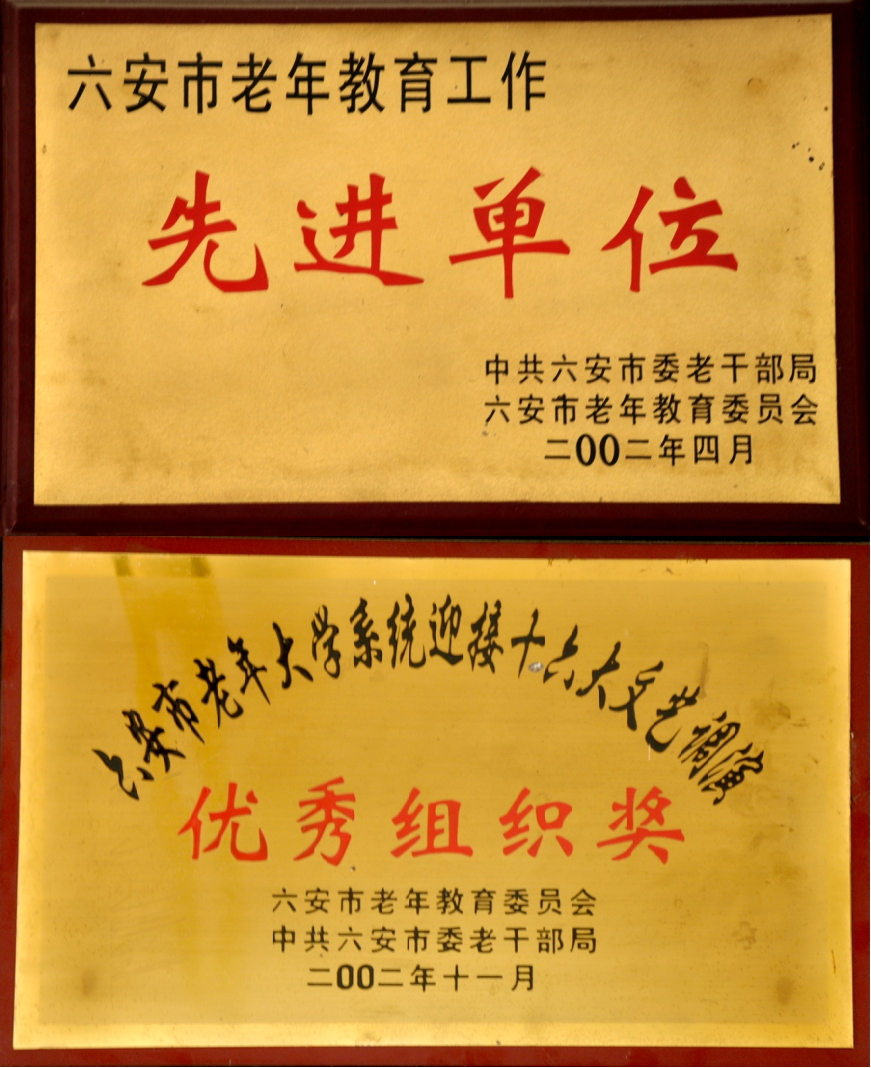 六安市老年教育工作
先进单位
中共六安市委老干部局
六安市老年教育委员会
二00二年四月
六安市老年大学系统迎接十六大文艺调演
优秀组织奖
六安市老年教育委员会
中共六安市委老干部局
二00二年十一月